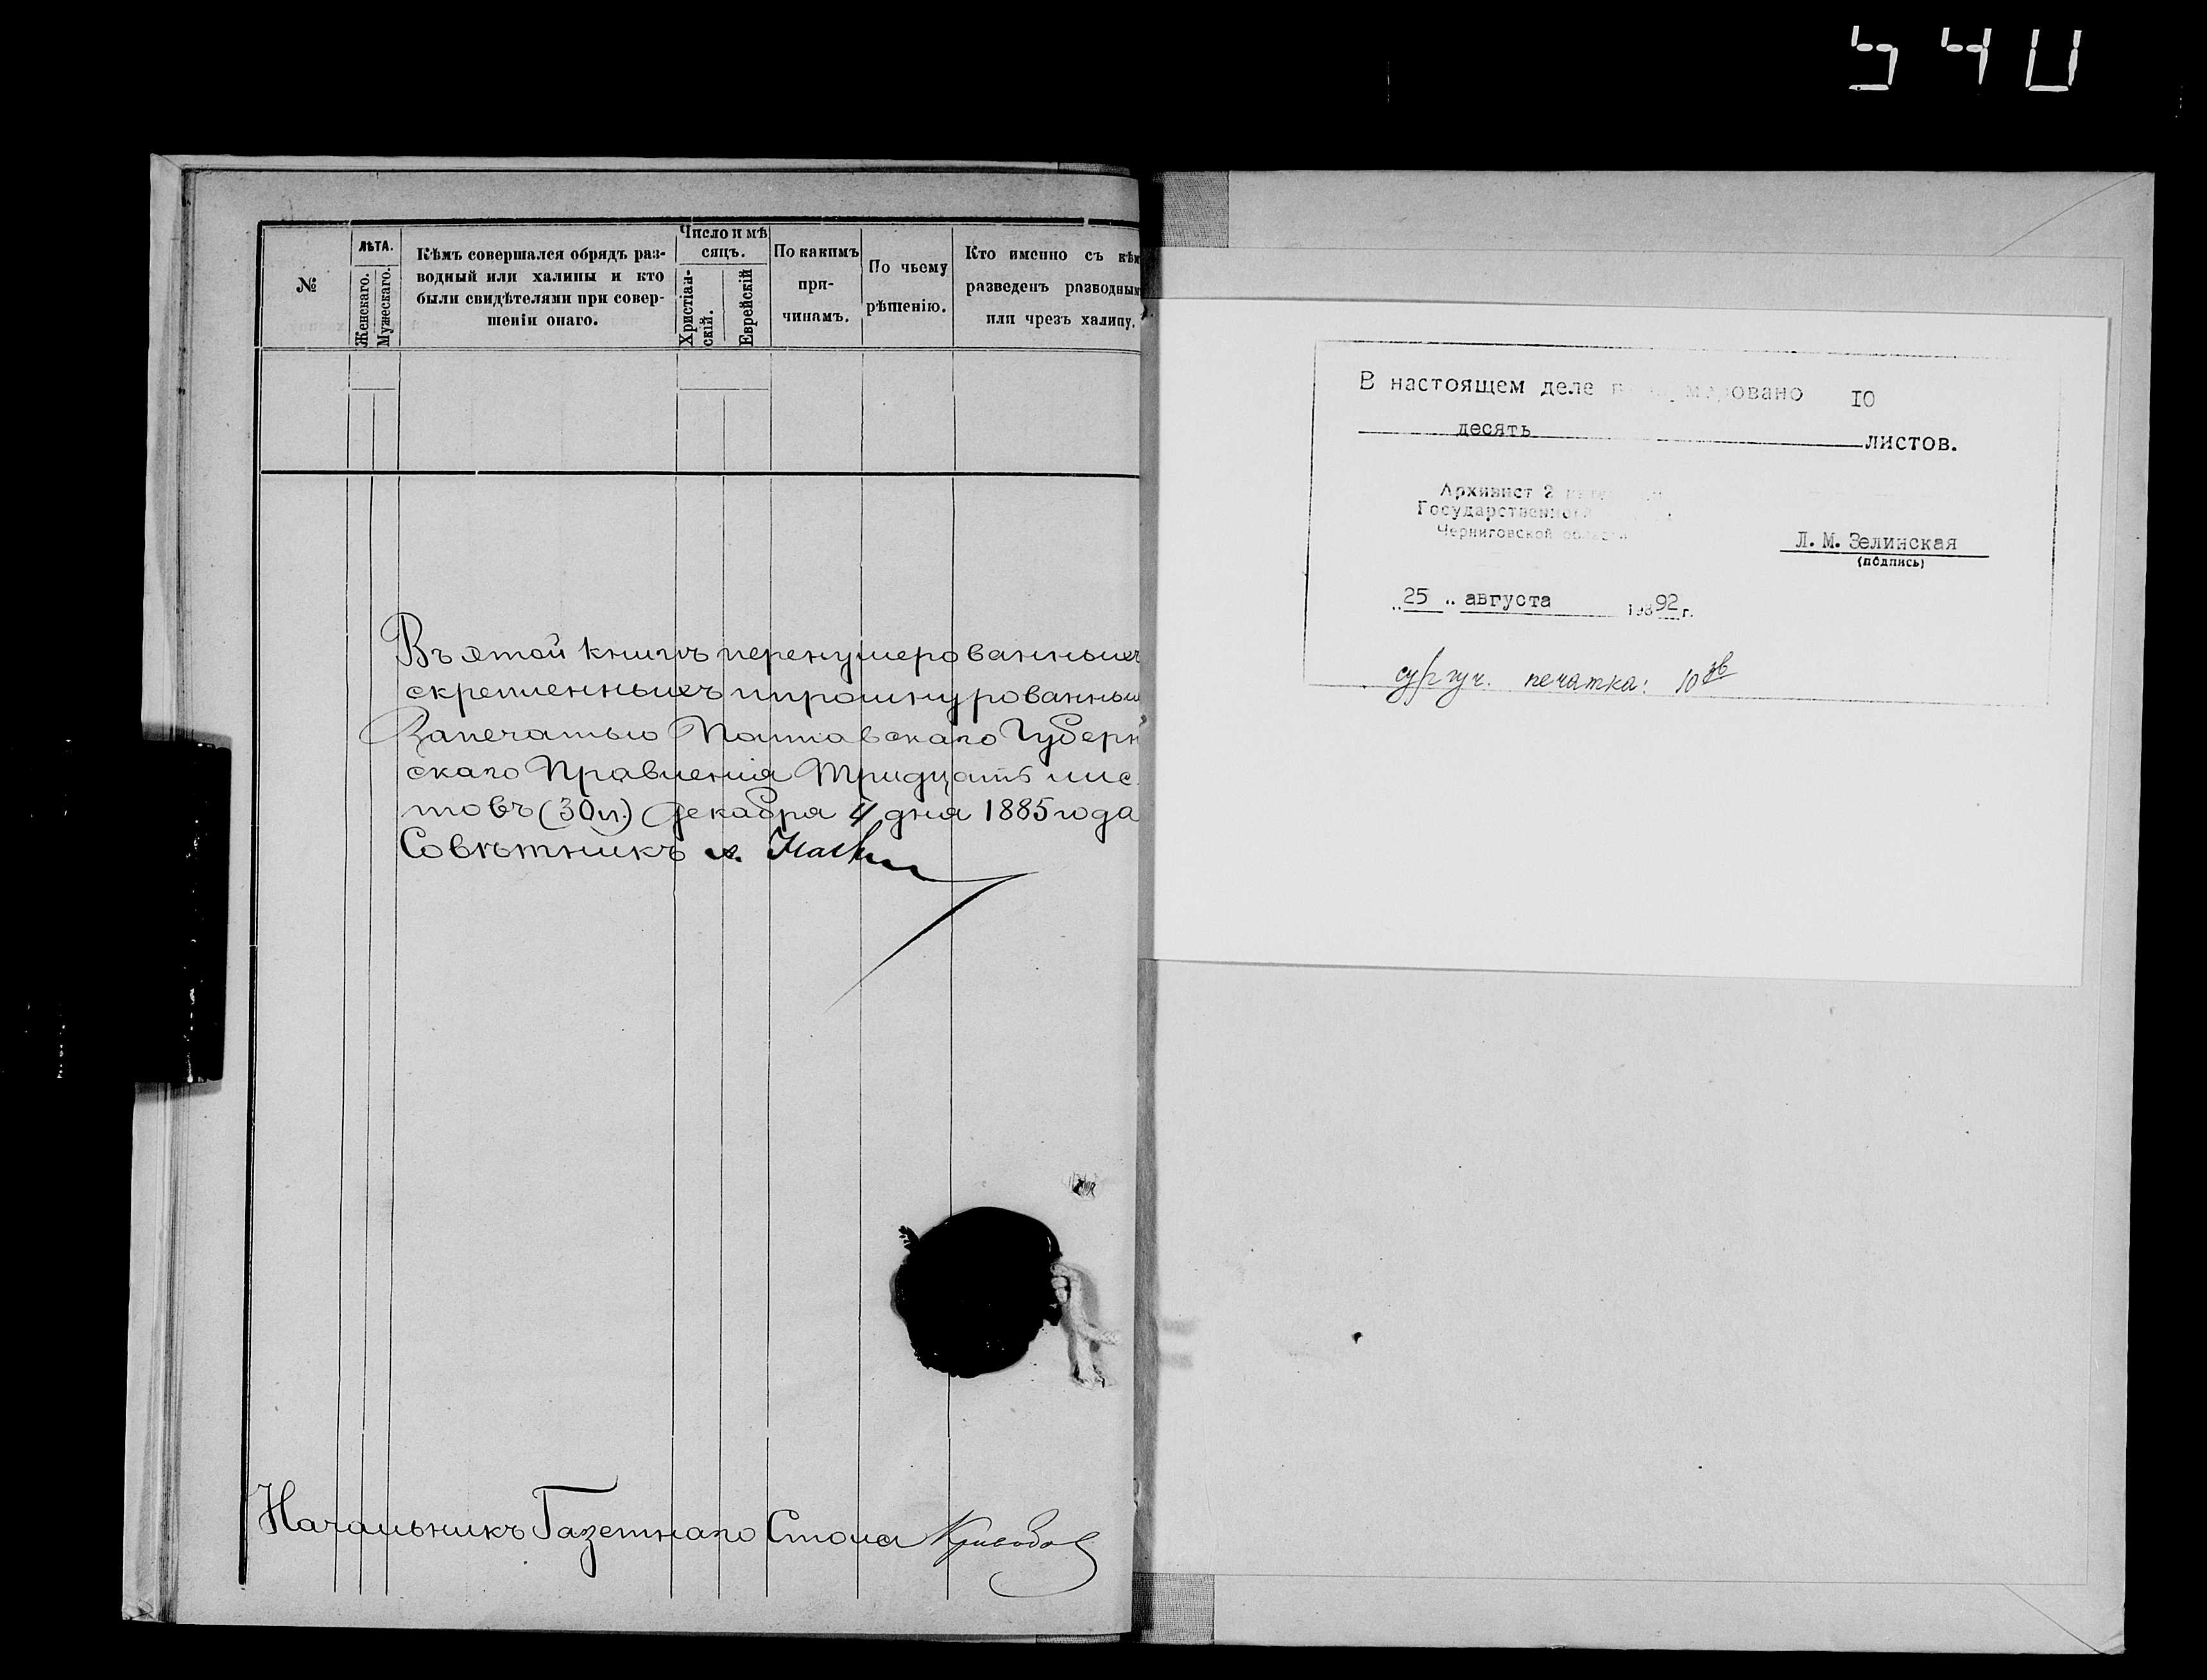 540
№
ЛѢТА.
Женскаго.
Мужескаго.
Кѣмъ совершался обрядъ раз-
водный или халицы и кто
были свидѣтелями при совер-
шеніи онаго.
Число и мѣ
сяцъ.
Христіан-
скій.
Еврейскій
По какимъ
при-
чинамъ.
По чьему
рѣшенію.
Кто именно съ кѣм
разведенъ разводным
или чрезъ халицу.
Въ этой книгѣ перенумерованныхъ
скрепленныхъ и прошнурованных
За печатью Полтавскаго Губерн
скаго Правленія Тридцать лис
товъ (30 л.) Декабря 4 дня 1885 года
Совѣтникъ
Начальникъ Газетнаго Стола
В настоящем деле 10
десять листов.
Архивист 2
Государственного
Черниговской области
Л. М. Зелинская
(подпись)
„ 25 „ августа 19892 г.
сургуч. печатка: 10 зв